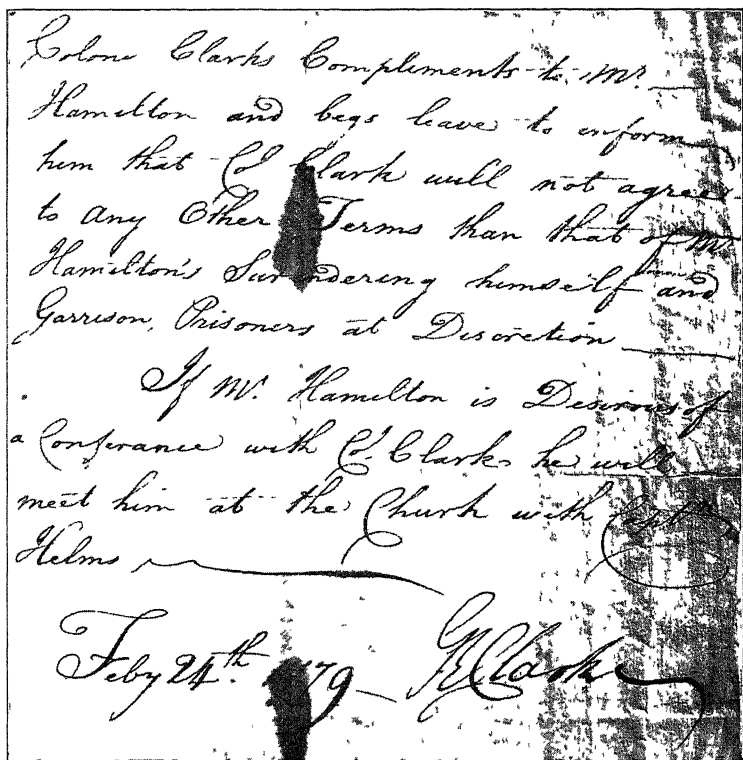 Colone Clarks Compliments to Mr.
Hamilton and begs leave to enform
him that Col Clark will not agree
to any Other Terms than that of Mr
Hamilton's Surrendering himself and
Garrison, Prisoners at Discretion
If Mr. Hamilton is Desirous of
a Conferance with Col. Clark he will
meet him at the Churh with Captn
Helms
Feby 24th. 1779 GR Clark